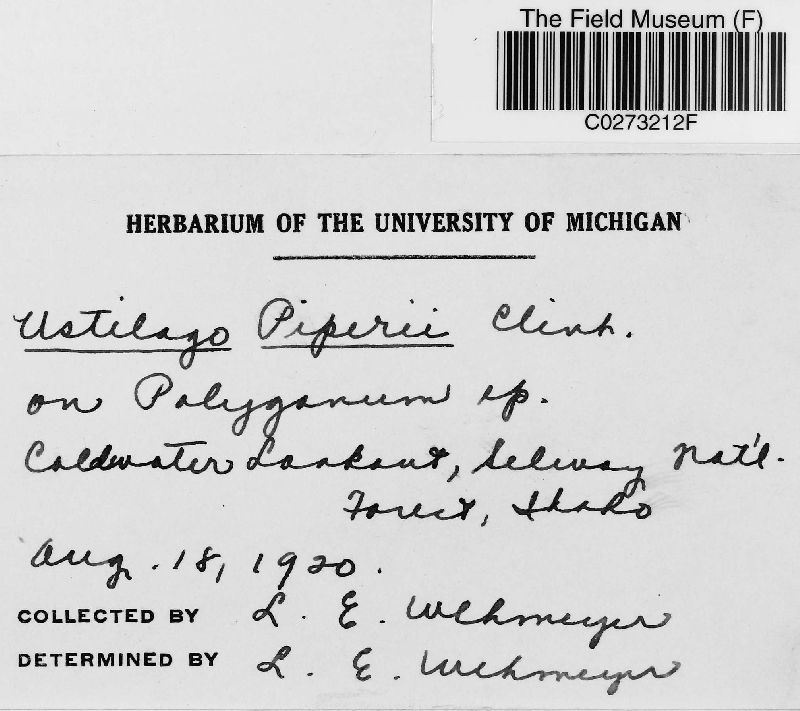 The Field Museum (F)
C0273212F
HERBARIUM OF THE UNIVERSITY OF MICHIGAN
Ustilago Piperii Clint.
on Polygonum sp.
Coldwater Lookout, Selway Nat'l.
Forest, Idaho
Aug. 18, 1920.
COLLECTED BY L. E. Wehmeyer
DETERMINED BY L. E. Wehmeyer